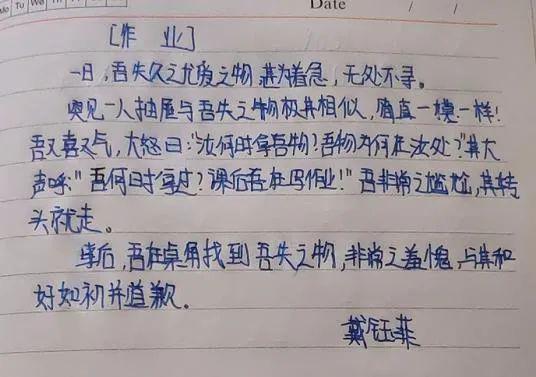 Mo Tu We Th Fr Sa Su
Date / /
[作 业]
一日，吾失久之尤爱之物，甚为着急，无处不寻。
突见一人抽屉与吾失之物极其相似，简直一模一样！
吾又喜又气，大怒曰：“汝何时拿吾物？吾物为何在汝处？”其大
声呼：“吾何日时拿过？课后吾在写作业！”吾非常之尴尬，其转
头就走。
事后，吾在桌角找到吾失之物，非常之羞愧，与其和
好如初并道歉。
戴钰菲